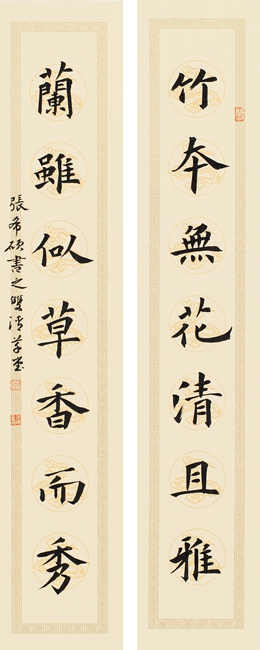 竹本無花清且雅
蘭雖似草香而秀
張希碩書之雙清草堂